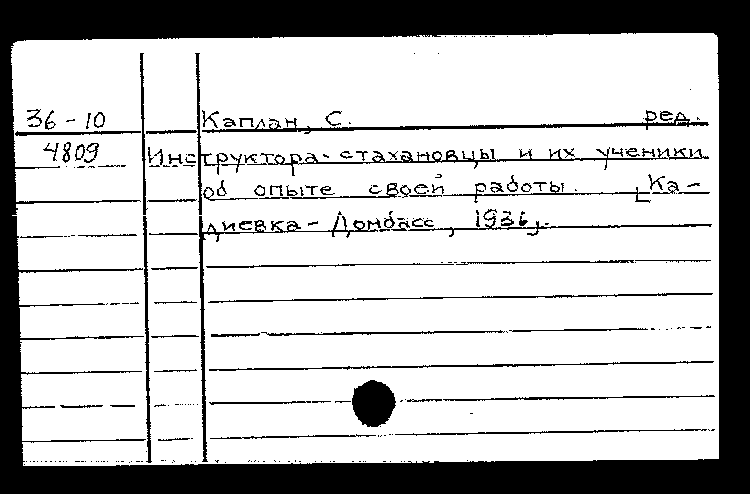 36-10 Каплан, С. ред.
4809 Инструктора-стахановцы и их ученики
об опыте своей работы. [Ка-
диевка-Донбасс, 1936].